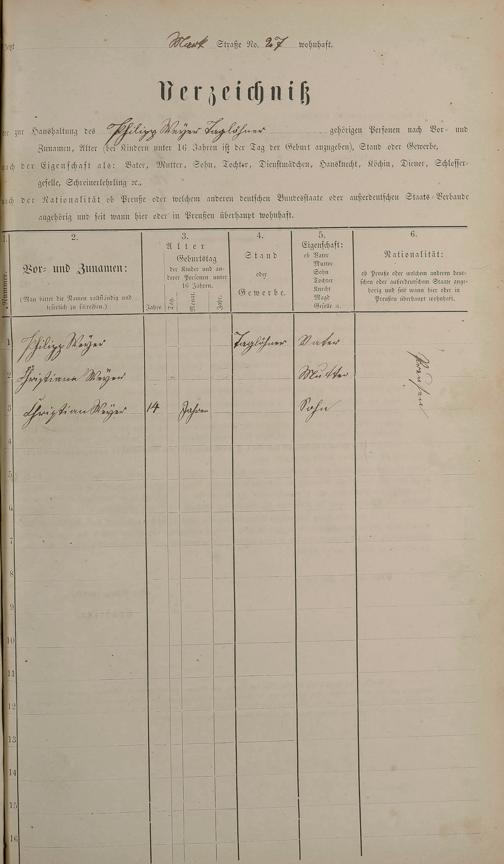 Mark Straße No. 27 wohnhaft.
Verzeichniß
zur Haushaltung des Philipp Weyer Taglöhner gehörigen Personen nach Vor- und
Zunamen, Alter (bei Kindern unter 16 Jahren ist der Tag der Geburt anzugeben), Stand oder Gewerbe,
nach der Eigenschaft als: Vater, Mutter, Sohn, Tochter, Dienstmädchen, Hausknecht, Köchin, Diener, Schlosser-
geselle, Schreinerlehrling ꝛc.,
nach der Nationalität ob Preuße oder welchem anderen deutschen Bundesstaate oder außerdeutschen Staats-Verbande
angehörig und seit wann hier oder in Preußen überhaupt wohnhaft.
1.
Nummer.
2.
Vor- und Zunamen:
(Man bittet die Namen vollständig und
leserlich zu schreiben.)
3.
Alter
Geburtstag
der Kinder und an-
derer Personen unter
16 Jahren.
Jahre
Tag.
Monat.
Jahr.
4.
Stand
oder
Gewerbe.
5.
Eigenschaft:
ob Vater
Mutter
Sohn
Tochter
Knecht
Magd
Geselle ꝛc.
6.
Nationalität:
ob Preuße oder welchem anderen deut-
schen oder außerdeutschen Staate ange-
hörig und seit wann hier oder in
Preußen überhaupt wohnhaft.
1 Philipp Weyer Taglöhner Vater Preußen
2 Christiane Weyer Mutter
3 Christian Weyer 14 Jahre Sohn
4
5
6
7
8
9
10
11
12
13
14
15
16